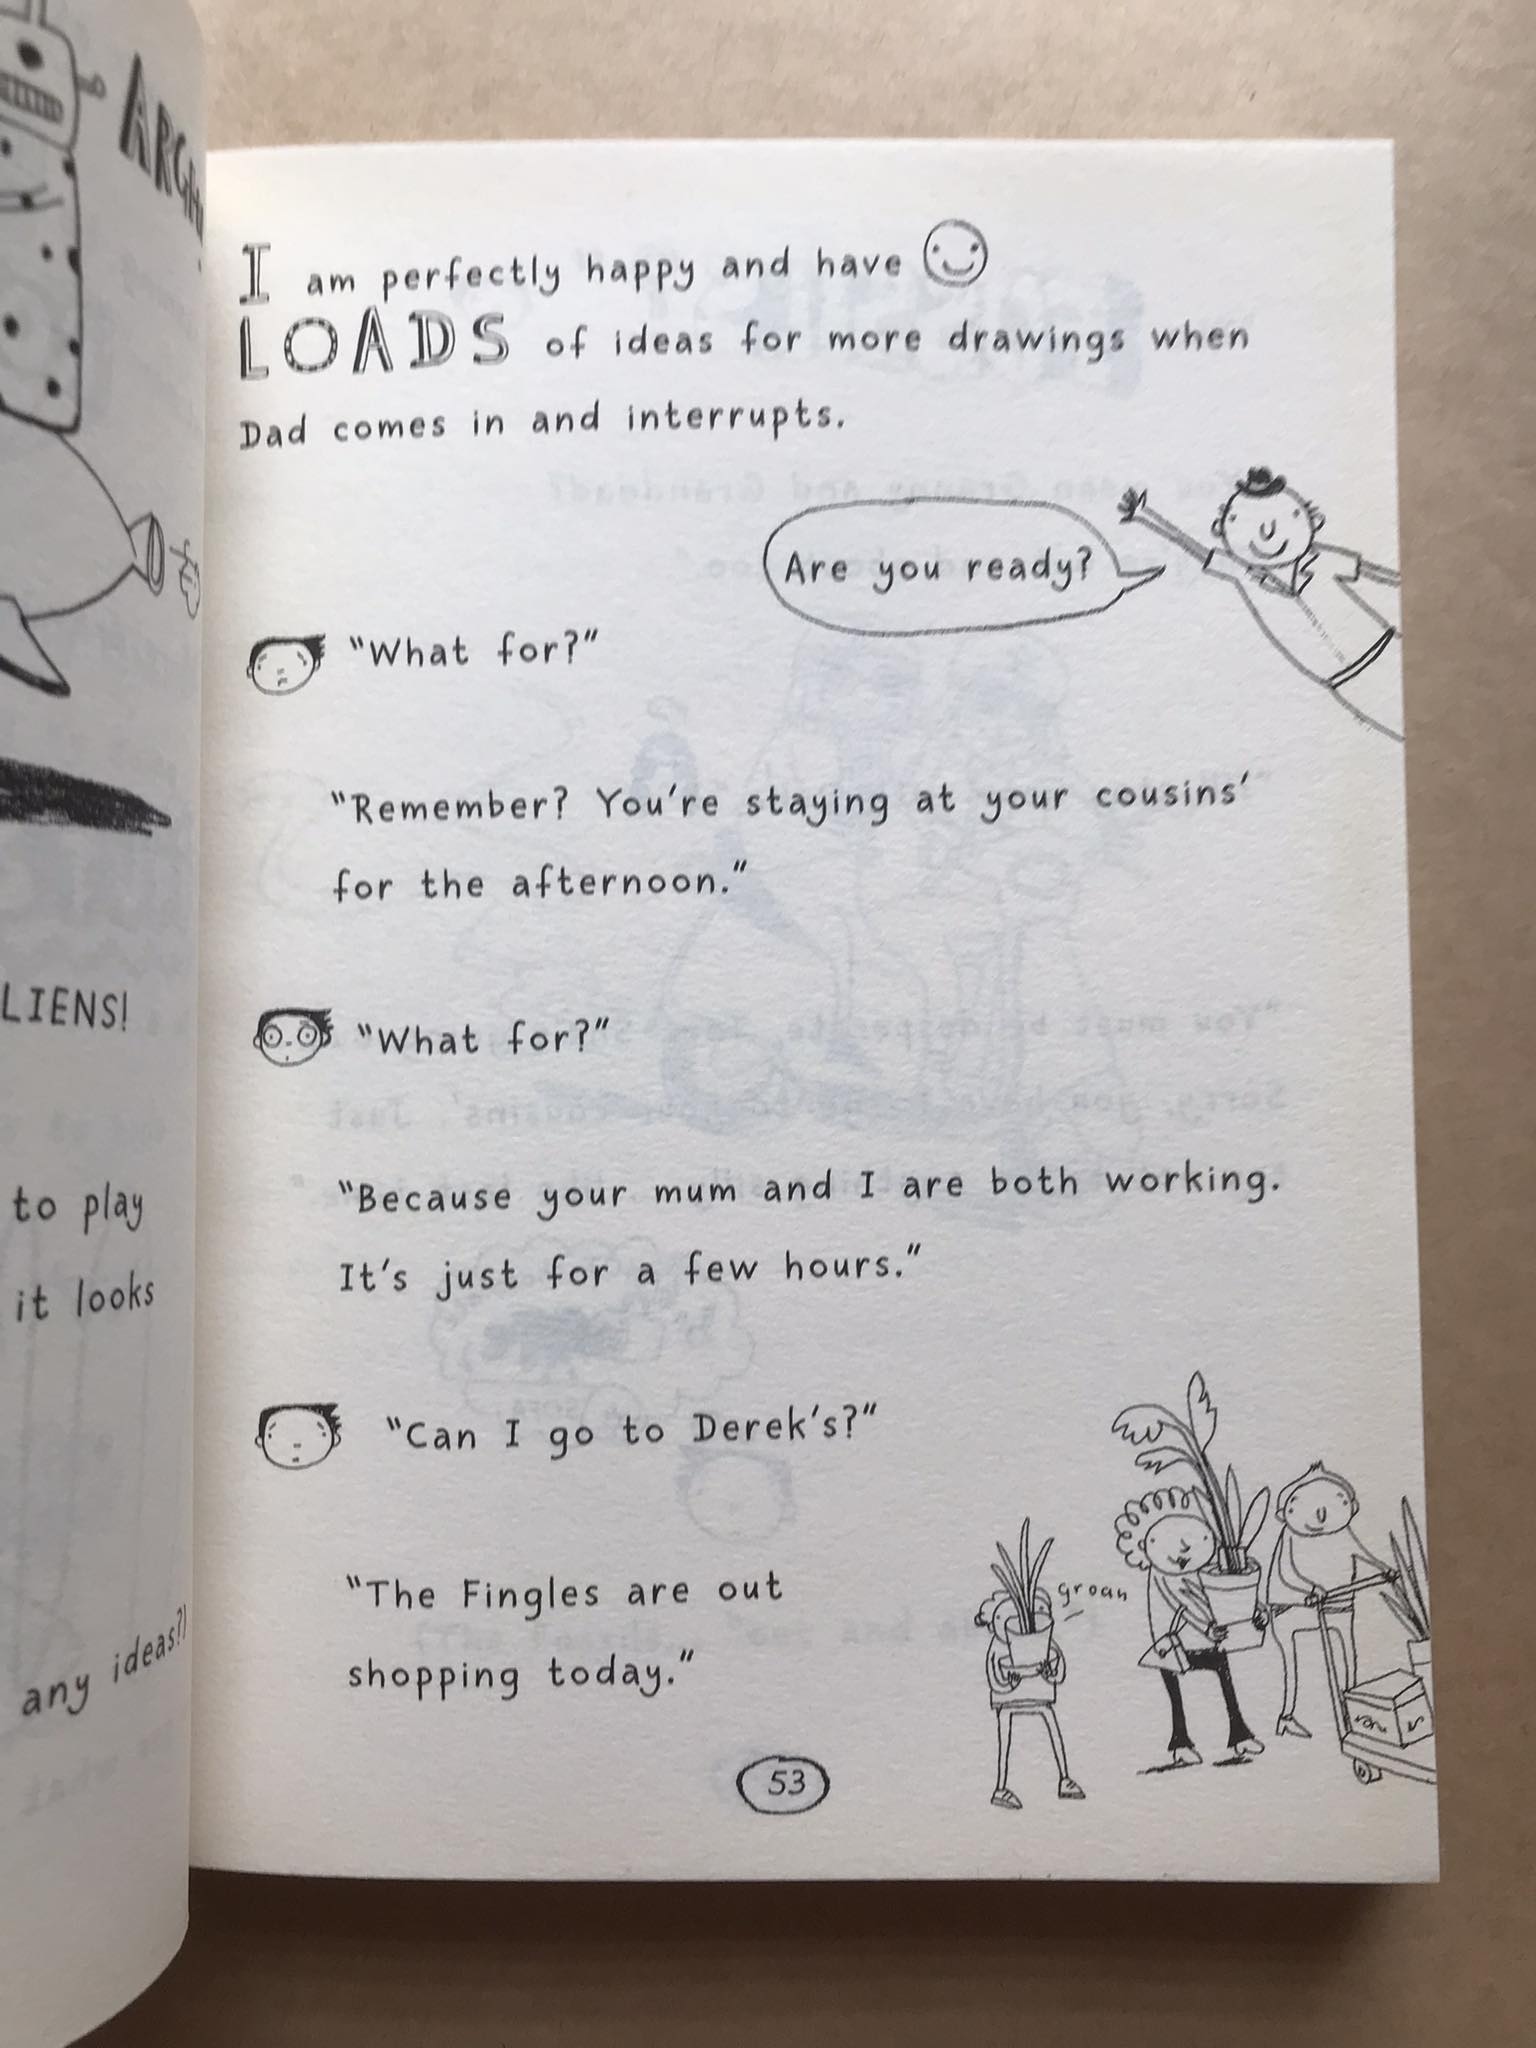 ARGH
LIENS!
to play
it looks
any ideas?)
I am perfectly happy and have
LOADS of ideas for more drawings when
Dad comes in and interrupts.
Are you ready?
"What for?"
"Remember? You're staying at your cousins'
for the afternoon."
"What for?"
"Because your mum and I are both working.
It's just for a few hours."
"Can I go to Derek's?"
groan
"The Fingles are out
shopping today."
53